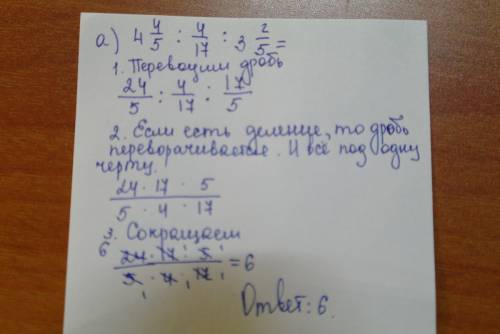 а) 4 4/5 : 4/17 : 3 2/5 =
1. Переводим дробь
24/5 : 4/17 : 17/5
2. Если есть деление, то дробь
переворачивается. И всё под одну
черту.
24 · 17 · 5
5 · 4 · 17
3. Сокращаем
6 24 · 17 · 5 / 5 · 4 · 17 = 6
Ответ: 6.